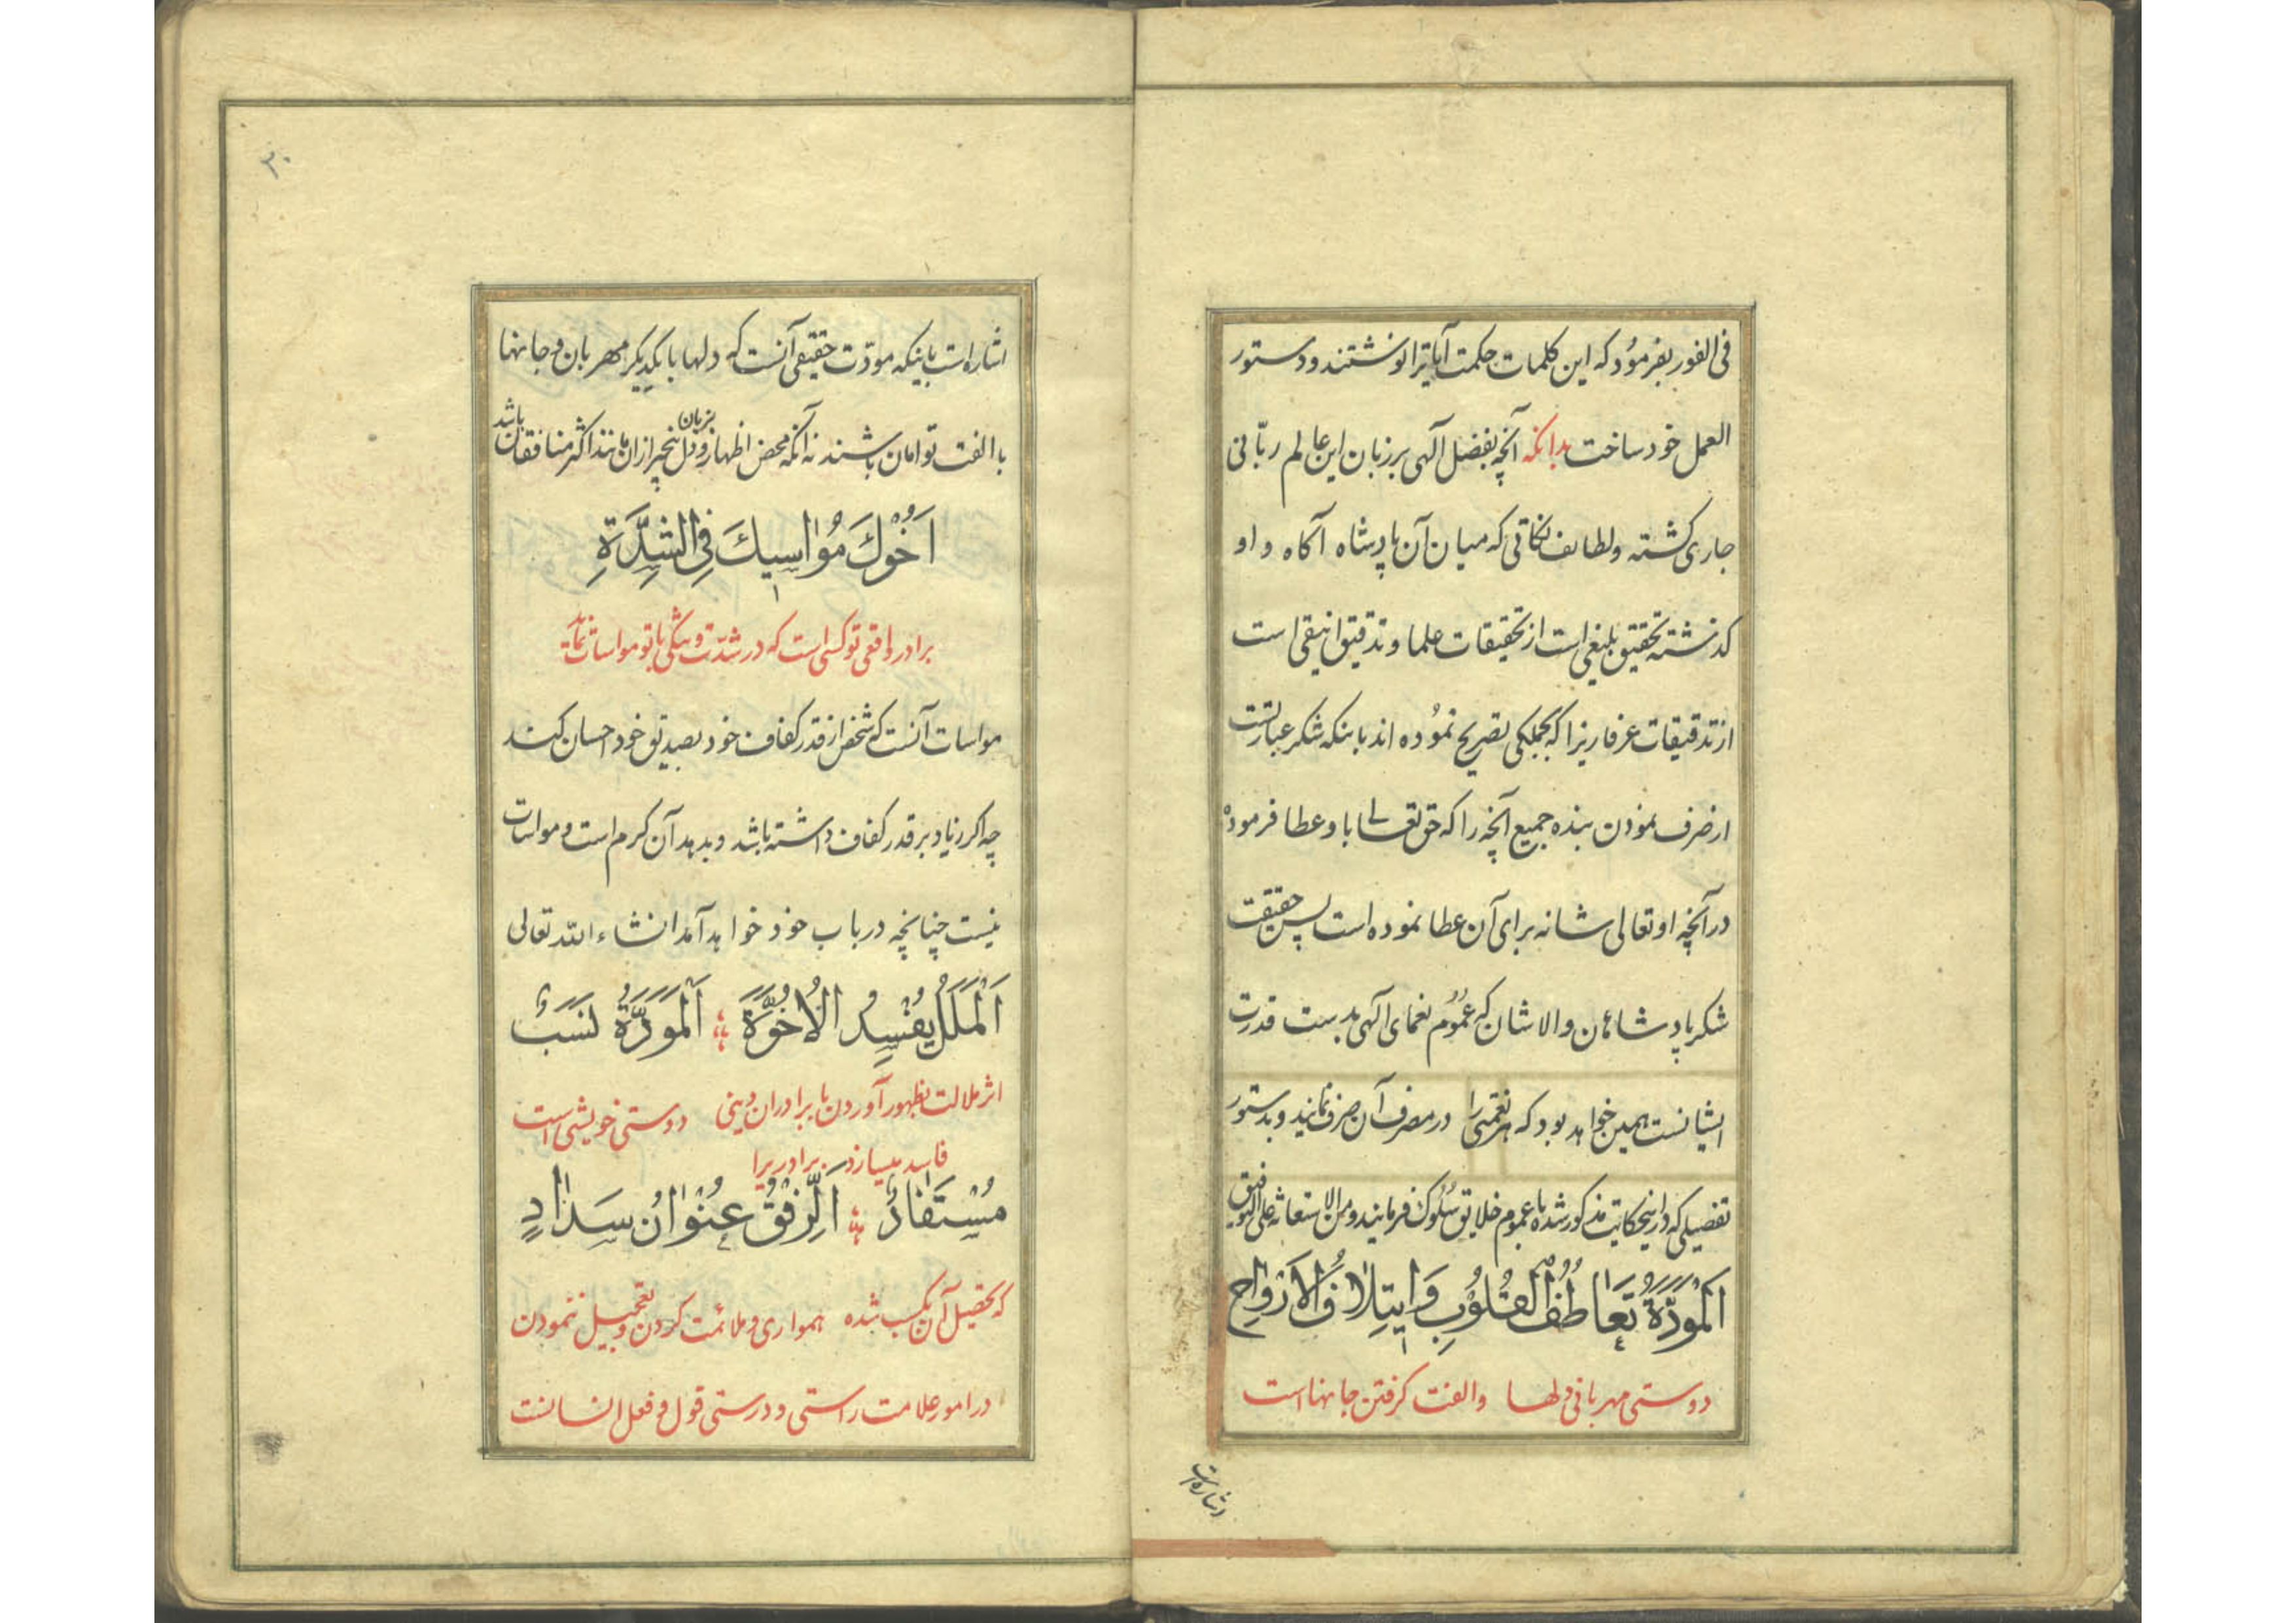 فی الفور بفرمود که این کلمات حکمت آیاترا نوشتند و دستور
العمل خود ساخت بدانکه آنچه بفضل آلهی بر زبان این عالم ربّانی
جاری کشته و لطایف نکاتی که میان آن پادشاه آکاه و او
کذشته تحقیق بلیغی است از تحقیقات علما و تدقیق انیقی است
از تدقیقات عرفا زیرا که بجملکی تصریح نموده اند باینکه شکر عبارتست
از صرف نمودن بنده جمیع آنچه را که حق تعالی باو عطا فرموده
در آنچه او تعالی شانه برای آن عطا نموده است پس حقیقت
شکر پادشاهان والاشان که عموم نعمای آلهی بدست قدرت
ایشانست همین خواهد بود که هر نعمتی را در مصرف آن صرف نمایند و بدستور
تفصیلی که در اینحکایت مذکور شده با عموم خلایق سلوک فرمایند و من الاستعانة علی التوفیق
اَلْمَوَدَّةُ تَعَاطُفُ الْقُلُوْبِ وَ ایتِلاٰفُ الْاَرْوٰاحِ
دوستی مهربانی دلها و الفت کرفتن جانهااست
اشاره است
۳۰
اشاره است باینکه مودّت حقیقی آنست که دلها با یکدیکر مهربان و جانها
با الفت توامان باشند نه آنکه محض اظهار بزبان و دل بیخبر از ان مانند اکثر منافقان باشد
اَخُوْكَ مُوٰاسیكَ فِی الشِّدَّةِ
برادر واقعی تو کسی است که در شدّت و تنکی با تو مواسات نماید
مواسات آنست که شخص از قدر کفاف خود بصدیق خود احسان کند
چه اکر زیاد بر قدر کفاف داشته باشد و بدهد آن کرم است و مواسات
نیست چنانچه در باب خود خواهد آمد انشاء الله تعالی
اَلْمَلَلُ یُفْسِدُ الْاُخُوَّةَ ؛ اَلْمَوَدَّةُ نَسَبٌ
اثر ملالت بظهور آوردن با برادران دینی دوستی خویشی است
فاسد میسازد برادریرا
مُسْتَفَادٌ ؛ اَلرِّفْقُ عِنْوٰانُ سَدٰادٍ
که تحصیل آن بکسب شده همواری و ملائمت کردن و تعجیل ننمودن
در امور علامت راستی و درستی قول و فعل انسانست